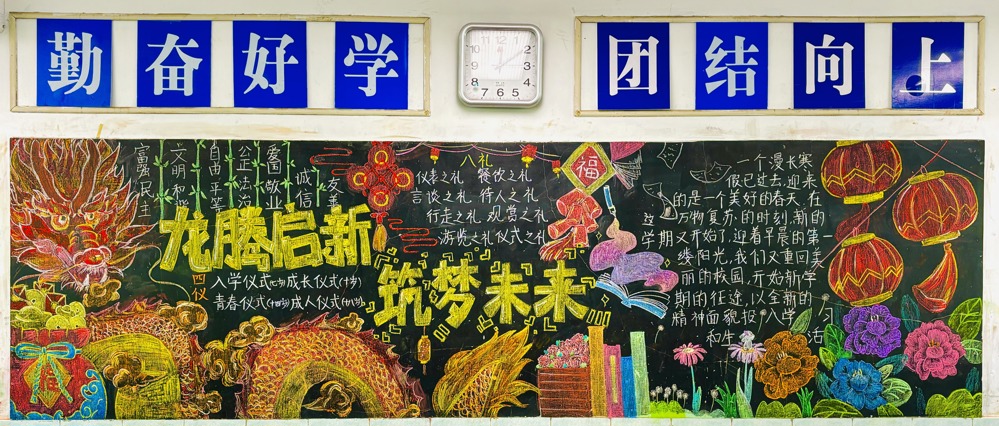 勤奋好学
团结向上
12
1
2
3
4
5
6
7
8
9
10
11
富强民主
文明和谐
自由平等
公正法治
爱国敬业
诚信
友善
龙腾启新
筑梦未来
八礼
仪表之礼 餐饮之礼
言谈之礼 待人之礼
行走之礼 观赏之礼
游览之礼 仪式之礼
四仪
入学仪式(七岁)成长仪式(十岁)
青春仪式(十四岁)成人仪式(十八岁)
福
福
一个漫长寒
假已过去,迎来
的是一个美好的春天,在
这万物复苏的时刻,新的
学期又开始了,迎着早晨的第一
缕阳光,我们又重回美
丽的校园,开始新学
期的征途,以全新的
精神面貌投入学习
和生活